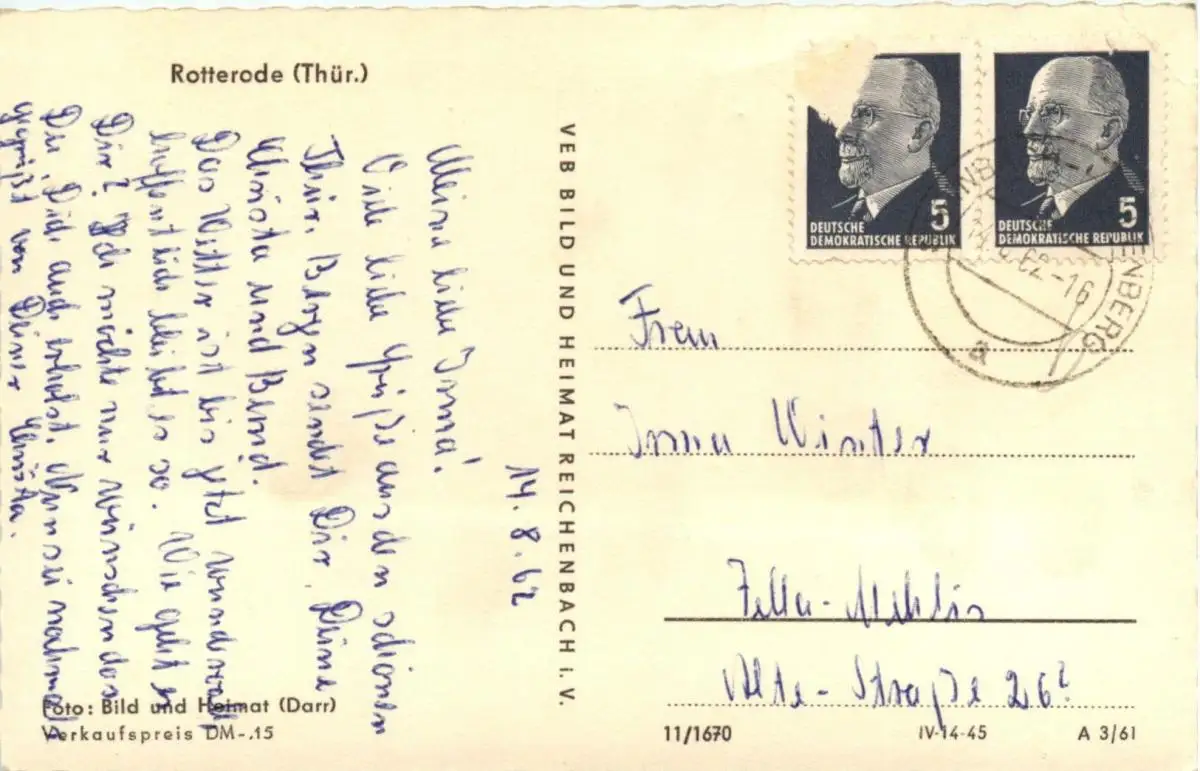 Rotterode (Thür.)
14. 8. 62
Meine liebe Irma!
Viele liebe Grüße aus den schönen
Thür. Bergen sendet Dir Deine
Christa und Bernd.
Das Wetter ist bis jetzt wundervoll
hoffentlich bleibt es so. Wie geht es
Dir? Ich möchte nur wünschen das
Du Dich auch erholst. Nun sei nochmals
gegrüßt von Deiner Christa.
Foto: Bild und Heimat (Darr)
Verkaufspreis DM -.15
VEB BILD UND HEIMAT REICHENBACH i. V.
5
DEUTSCHE
DEMOKRATISCHE REPUBLIK
5
DEUTSCHE
DEMOKRATISCHE REPUBLIK
62-16
ENBERG
a
Frau
Irma Winter
Zella-Mehlis
Alte-Straße 26?
11/1670
IV-14-45
A 3/61